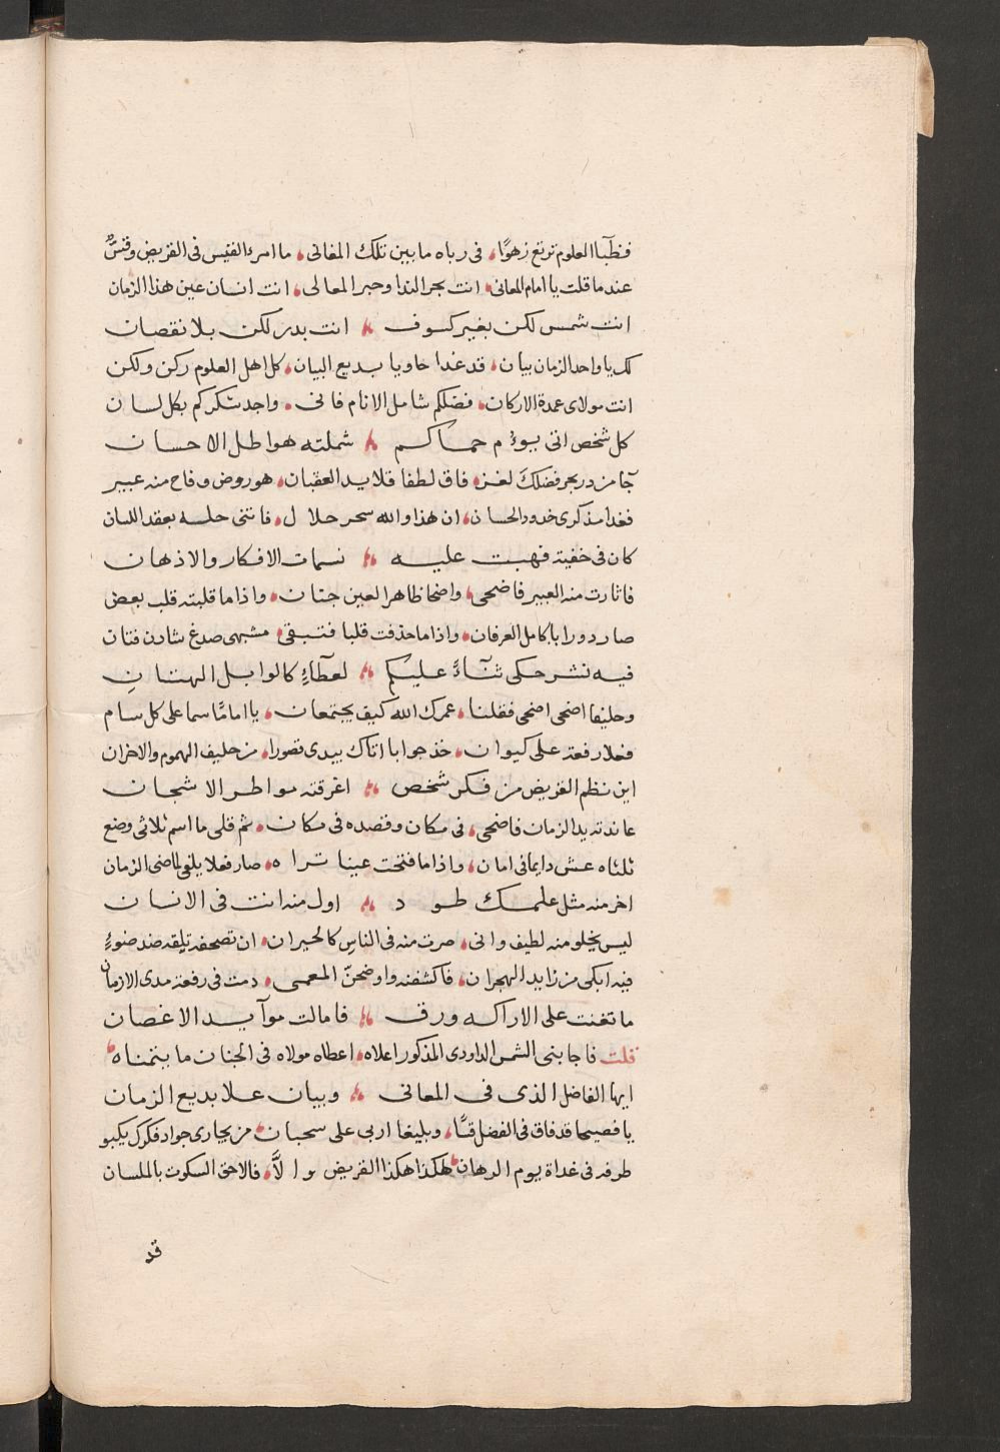 فظبآ العلوم ترتع زهوًا، فى رباه ما بين تلك المغانى، ما امرء القيس فى القريض وقسٌّ
عندما قلت يا امام المعانى، انت بحر الندا وحبر المعالى، انت انسان عين هذا الزمان
انت شمس لكن بغير كسوف ، انت بدر لكن بلا نقصان
لك يا واحد الزمان بيان، قد غدا حاويا بديع البيان، كل اهل العلوم ركن ولكن
انت مولاى عمدة الاركان، فضلكم شامل الانام فانى ، واجد شكركم بكل لسان
كل شخص اتى يوءم حماكم ، شملته هواطل الاحسان
جآ من در بحر فضلكَ لغز، فاق لطفا قلايد العقيان، هو روض وفاح منه عبير
فغدا مذكرى خدود الحسان، ان هذا والله سحر حلال، فاتنى حلسه بعقد اللسان
كان فى خفية فهبت عليه ، نسمات الافكار والاذهان
فاثارت منه العبير فاضحى، واضحا ظاهرا لعين جنان، واذا ما قلبته قلب بعض
صار دورا يا كامل العرفان، واذا ما حذفت قلبا فتبقى، مشبهى صدغ شادن فتان
فيه نشر حكى ثنآءً عليكم ، لعطآءٍ كالوابل الهتانِ
وحليفا اضحى اضحى فقلنا، عمرك الله كيف يجتمعان، يا امامًا سما على كل سام
فعلا رفعة على كيوان، خذ جوابا اتاك يبدى قصورا، من حليف الهموم والاحزان
اين نظم القريض من فكر شخص ، اغرقته مواطر الاشجان
عاندته يد الزمان فاضحى، فى مكان وقصده فى مكان، ثم قل لى ما اسم ثلاثى وضع
ثلثاه عش دايما فى امان، واذا ما فتحت عينا تراه، صار فعلا يلغى لماضى الزمان
اخر منه مثل علمك طود ، اول منه انت فى الانسان
ليس يخلو منه لطيف وانى، صرت منه فى الناس كالحيران، ان تصحفه تلقه ضد ضوءٍ
فيه ابكى من زايد الهجران، فاكشفنه واوضحنّ المعمى، دمت فى رفعة مدى الازمان
ما تغنت على الاراكه ورق ، فامالت موآيد الاغصان
قلت فاجابنى الشمس الداودى المذكور اعلاه، اعطاه مولاه فى الجنان ما يتمناه،
ايها الفاضل الذى فى المعانى ، وبيان علا بديع الزمان
يا فصيحا قد فاق فى الفضل قسًّا، وبليغا اربى على سحبان، من يجارى جواد فكرك يكبو
طرفه فى غداة يوم الرهان، هكذا هكذا القريض والاَّ، فالاحق السكوت باللسان
قد